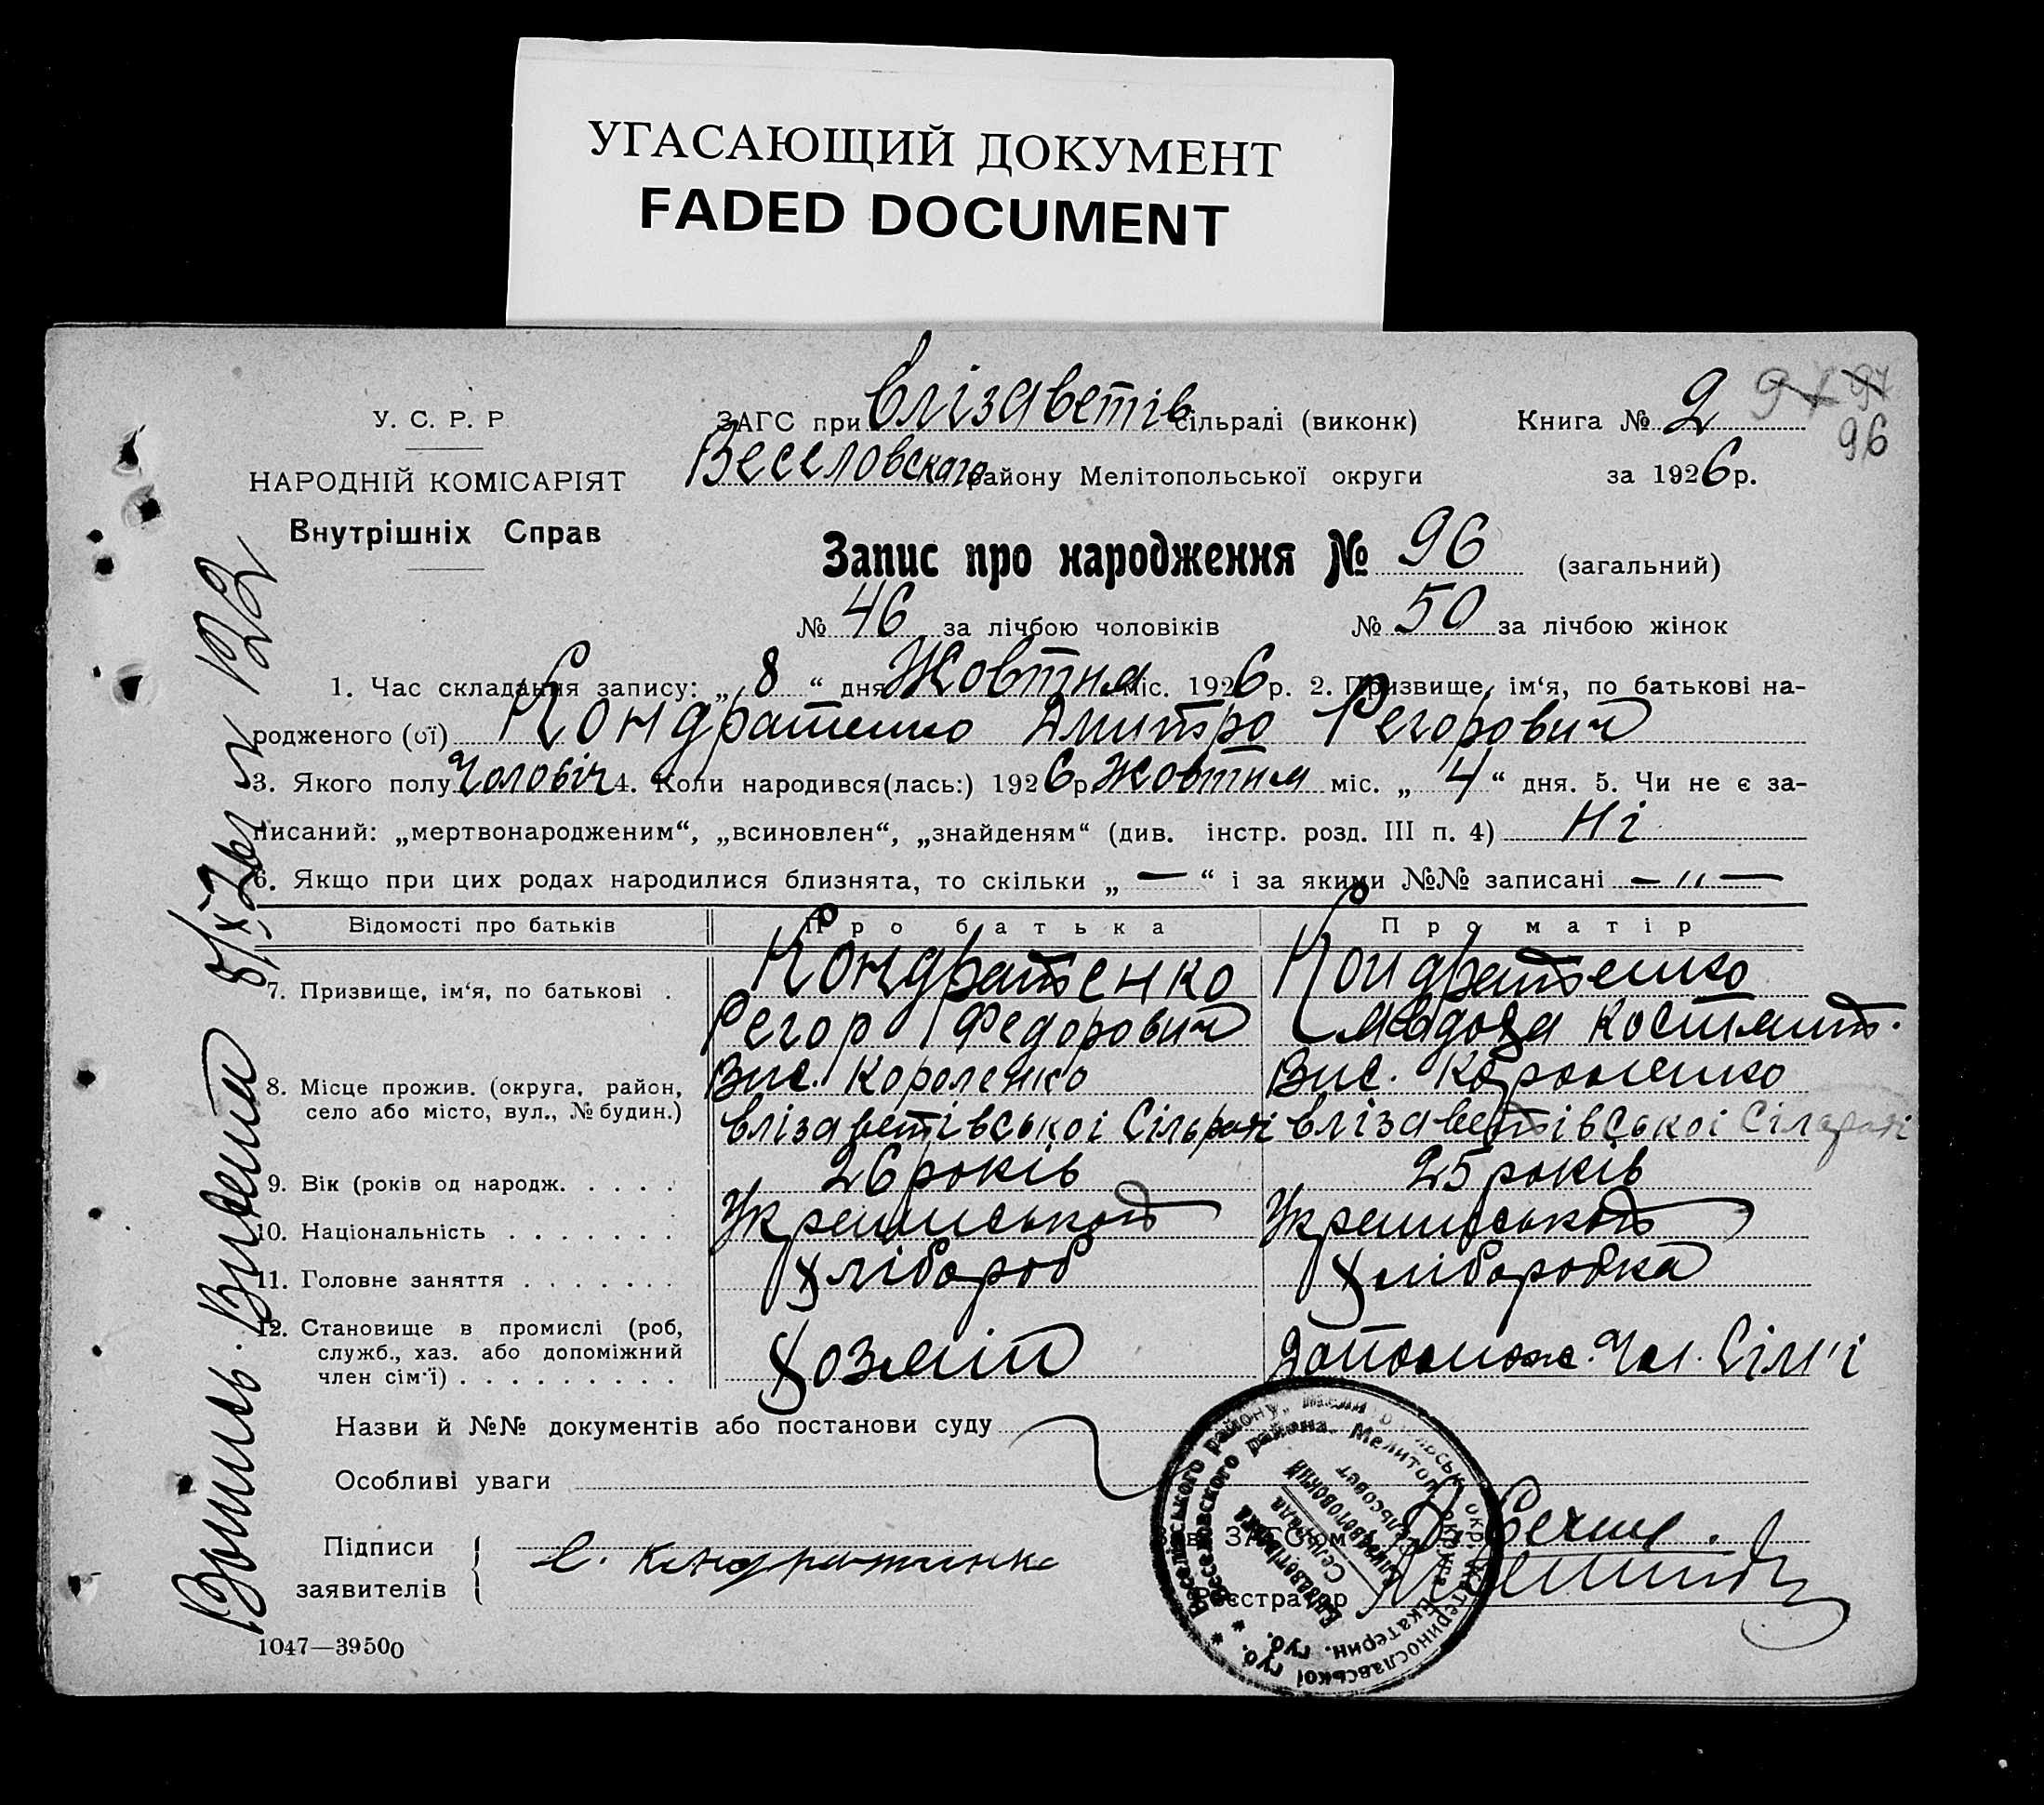 УГАСАЮЩИЙ ДОКУМЕНТ
FADED DOCUMENT
У. С. Р. Р
НАРОДНІЙ КОМІСАРІЯТ
Внутрішніх Справ
ЗАГС при Єлізаветів сільраді (виконк)
Веселовского району Мелітопольської округи
Книга № 2
за 1926 р.
97 97
96
Запис про народження № 96 (загальний)
№ 46 за лічбою чоловіків № 50 за лічбою жінок
1. Час складання запису: „ 8 “ дня Жовтня міс. 1926 р. 2. Призвище, ім‘я, по батькові на-
родженого (ої) Кондратенко Дмитро Єегорович
3. Якого полу Чоловіч 4. Коли народився(лась:) 1926 р Жовтня міс. „ 4 “ дня. 5. Чи не є за-
писаний: „мертвонародженим“, „всиновлен“, „знайденям“ (див. інстр. розд. III п. 4) Ні
6. Якщо при цих родах народилися близнята, то скільки „ — “ і за якими №№ записані — „ —
Відомості про батьків Про батька Про матір
7. Призвище, ім‘я, по батькові . Кондратенко Кондратенко
Єегор Федорович Костянт.
8. Місце прожив. (округа, район, Вис. Короленко Вис. Короленко
село або місто, вул., № будин.) Єлізаветівської Сільраді Єлізаветівської Сільраді
9. Вік (років од народж. . . . . 26 років 25 років
10. Національність . . . . . . .
11. Головне заняття . . . . . . . Хлібороб Хліборобка
12. Становище в промислі (роб,
служб., хаз. або допоміжний
член сім‘ї) . . . . . . . . . Хозяін Допомож. Чл. Сім'ї
Назви й №№ документів або постанови суду
Особливі уваги
Підписи
заявителів Є. Кондратинко
Зав. ЗАГС‘ом
Реєстратор
1047—39500